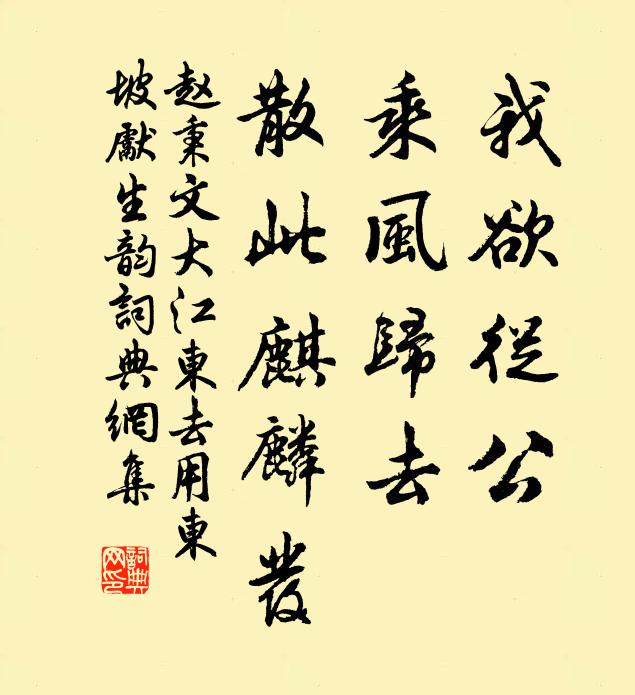 我欲從公
乘風歸去
散此麒麟髮
赵秉文大江東去用東
坡獻生韵詞典網集
詞典网印